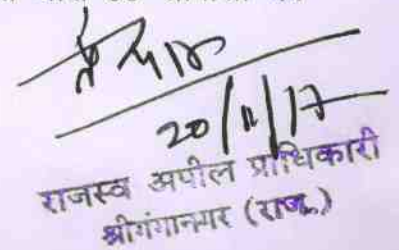 20/11/17
राजस्व अपील प्राधिकारी
श्रीगंगानगर (राज.)